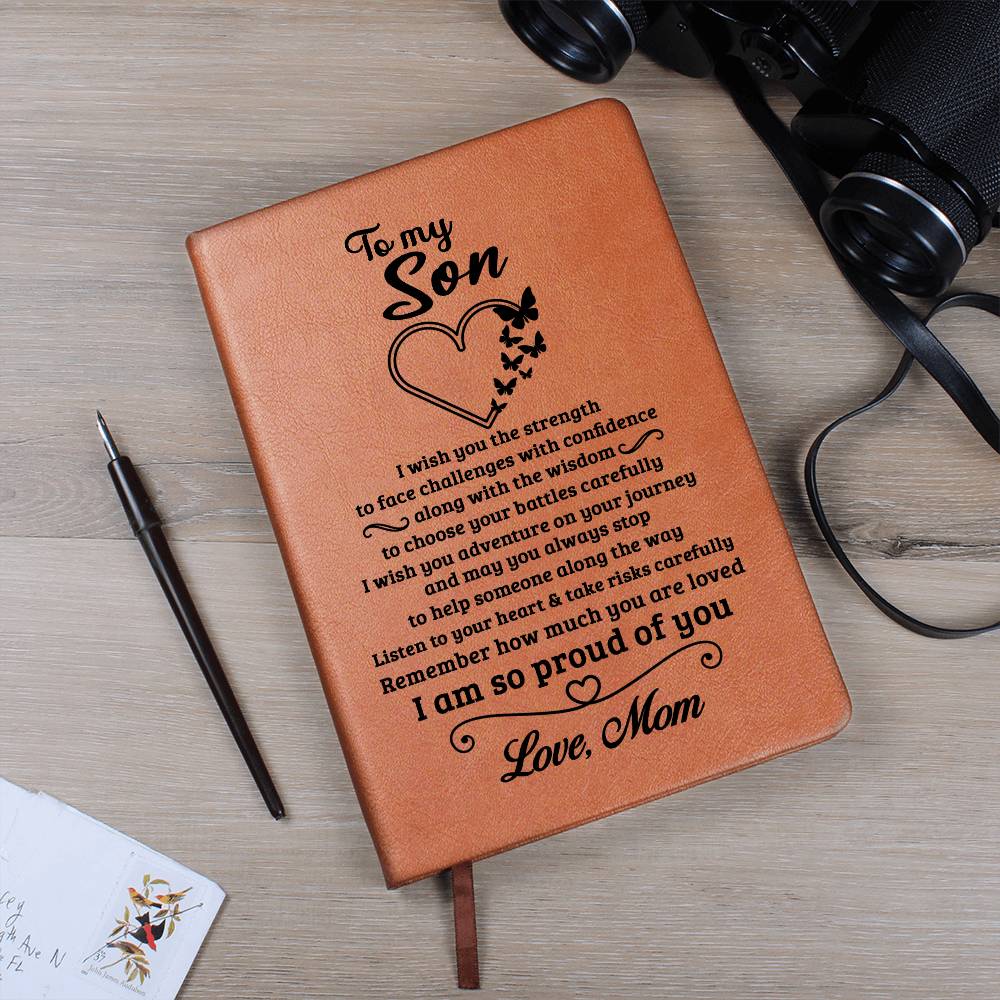 To my
Son
I wish you the strength
to face challenges with confidence
along with the wisdom
to choose your battles carefully
I wish you adventure on your journey
and may you always stop
to help someone along the way
Listen to your heart & take risks carefully
Remember how much you are loved
I am so proud of you
Love, Mom
Ave N
FL
37
John James Audubon